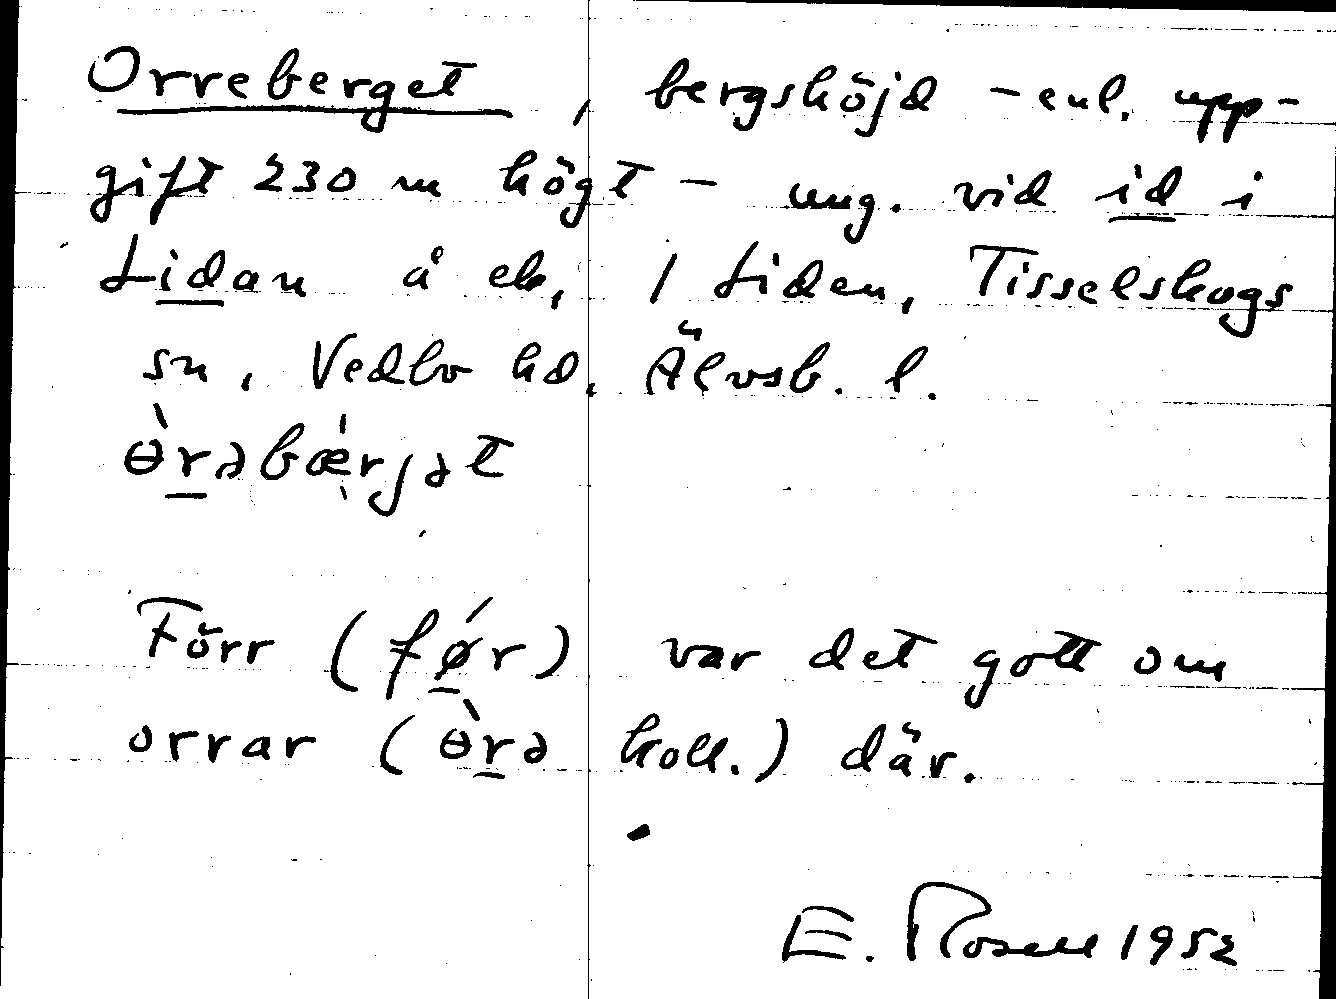 Orreberget, bergshöjd – enl. upp-
gift 230 m högt – ung. vid id i
Lidan å ek, 1 Liden, Tisselskogs
sn, Vedbo hd. Älvsb. l.
ɵ̀r̲əbæ̣̍rjət
Förr (fǿ̲r) var det gott om
orrar (ɵ̀r̲ə koll.) där.
E. Rosell 1952